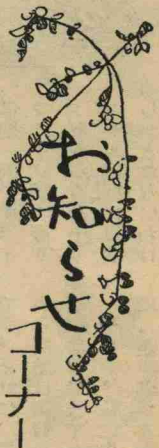 お知らせ
コーナー